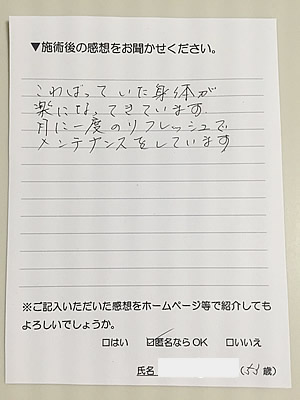 ▼施術後の感想をお聞かせください。
こわばっていた身体が
楽になってきています
月に一度のリフレッシュで
メンテナンスをしています
※ご記入いただいた感想をホームページ等で紹介しても
よろしいでしょうか。
□はい ☑匿名ならOK □いいえ
氏名 (53歳)